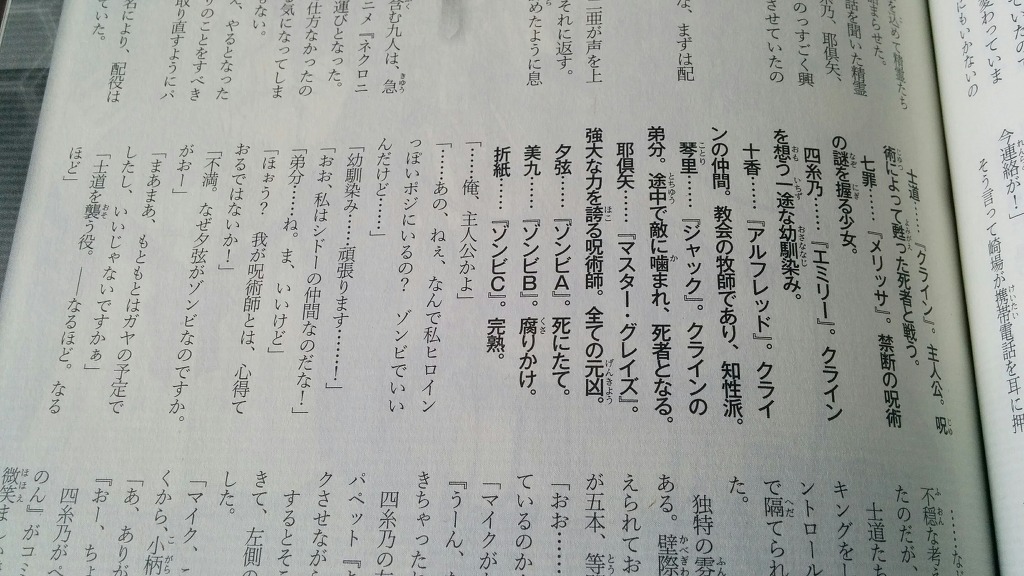 今連絡か！」
そう言って崎場が携帯電話を耳に押
を込めて精霊たち
始まらせた。
話を聞いた精霊
糸乃、耶倶矢、
のっすごく興
させていたの
な、まずは配
二亜が声を上
それに返す。
めたように息
含む九人は、急
運びとなった。
ニメ『ネクロニ
仕方なかったの
気になってしま
もない。
え、やるとなった
りのことをすべき
取り直すようにパ
名により、配役は
ていた。
士道……『クライン』。主人公。呪
術によって甦った死者と戦う。
七罪……『メリッサ』。禁断の呪術
の謎を握る少女。
四糸乃……『エミリー』。クライン
を想う一途な幼馴染み。
十香……『アルフレッド』。クライ
ンの仲間。教会の牧師であり、知性派。
琴里……『ジャック』。クラインの
弟分。途中で敵に噛まれ、死者となる。
耶倶矢……『マスター・グレイズ』。
強大な力を誇る呪術師。全ての元凶。
夕弦……『ゾンビA』。死にたて。
美九……『ゾンビB』。腐りかけ。
折紙……『ゾンビC』。完熟。
「……俺、主人公かよ」
「……あの、ねぇ、なんで私ヒロイン
っぽいポジにいるの？　ゾンビでいい
んだけど……」
「幼馴染み……頑張ります……！」
「おお、私はシドーの仲間なのだな！」
「弟分……ね。ま、いいけど」
「ほぉう？　我が呪術師とは、心得て
おるではないか！」
「不満。なぜ夕弦がゾンビなのですか。
がおー」
「まあまあ、もともとはガヤの予定で
したし、いいじゃないですかぁ」
「士道を襲う役。――なるほど。なる
ほど」
……な
不穏な考
たのだが、
士道た
キングをー
ントロール
で隔てられ
た。
独特の雰
ある。壁際
えられてお
が五本、等
「おお……
ているのか
「マイクが
『うーん、
きちゃった
四糸乃の左
パペット『
クさせなが
するとそこ
きて、左側の
した。
「マイク、
くから、小柄
「あ、ありが
『おー、ちょ
四糸乃がペ
のん』がコミ
微笑ましい